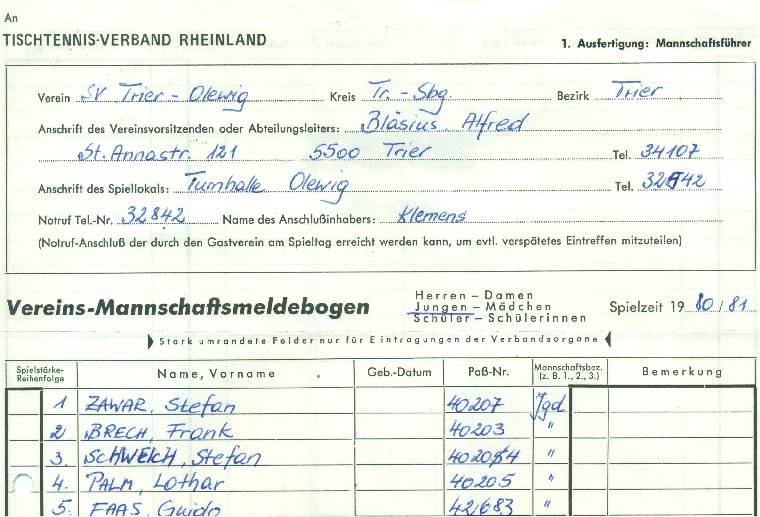 An
TISCHTENNIS-VERBAND RHEINLAND
1. Ausfertigung: Mannschaftsführer
Verein SV Trier-Olewig Kreis Tr.-Sbg. Bezirk Trier
Anschrift des Vereinsvorsitzenden oder Abteilungsleiters: Bläsius, Alfred
St. Annastr. 121 5500 Trier Tel. 34107
Anschrift des Spiellokals: Turnhalle Olewig Tel.
Notruf Tel.-Nr. 32842 Name des Anschlußinhabers: Klemens
(Notruf-Anschluß der durch den Gastverein am Spieltag erreicht werden kann, um evtl. verspätetes Eintreffen mitzuteilen)
Vereins-Mannschaftsmeldebogen
Herren – Damen
Jungen – Mädchen
Schüler – Schülerinnen
Spielzeit 19 80/81
Stark umrandete Felder nur für Eintragungen der Verbandsorgane
Spielstärke-Reihenfolge Name, Vorname Geb.-Datum Paß-Nr. Mannschaftsbez. (z. B. 1., 2., 3.) Bemerkung
1 ZAWAR, Stefan 40207 Jgd
2 BRECH, Frank 40203 "
3. SCHWEICH, Stefan "
4. PALM, Lothar 40205 "
5. FAAS, Guido 42683 "